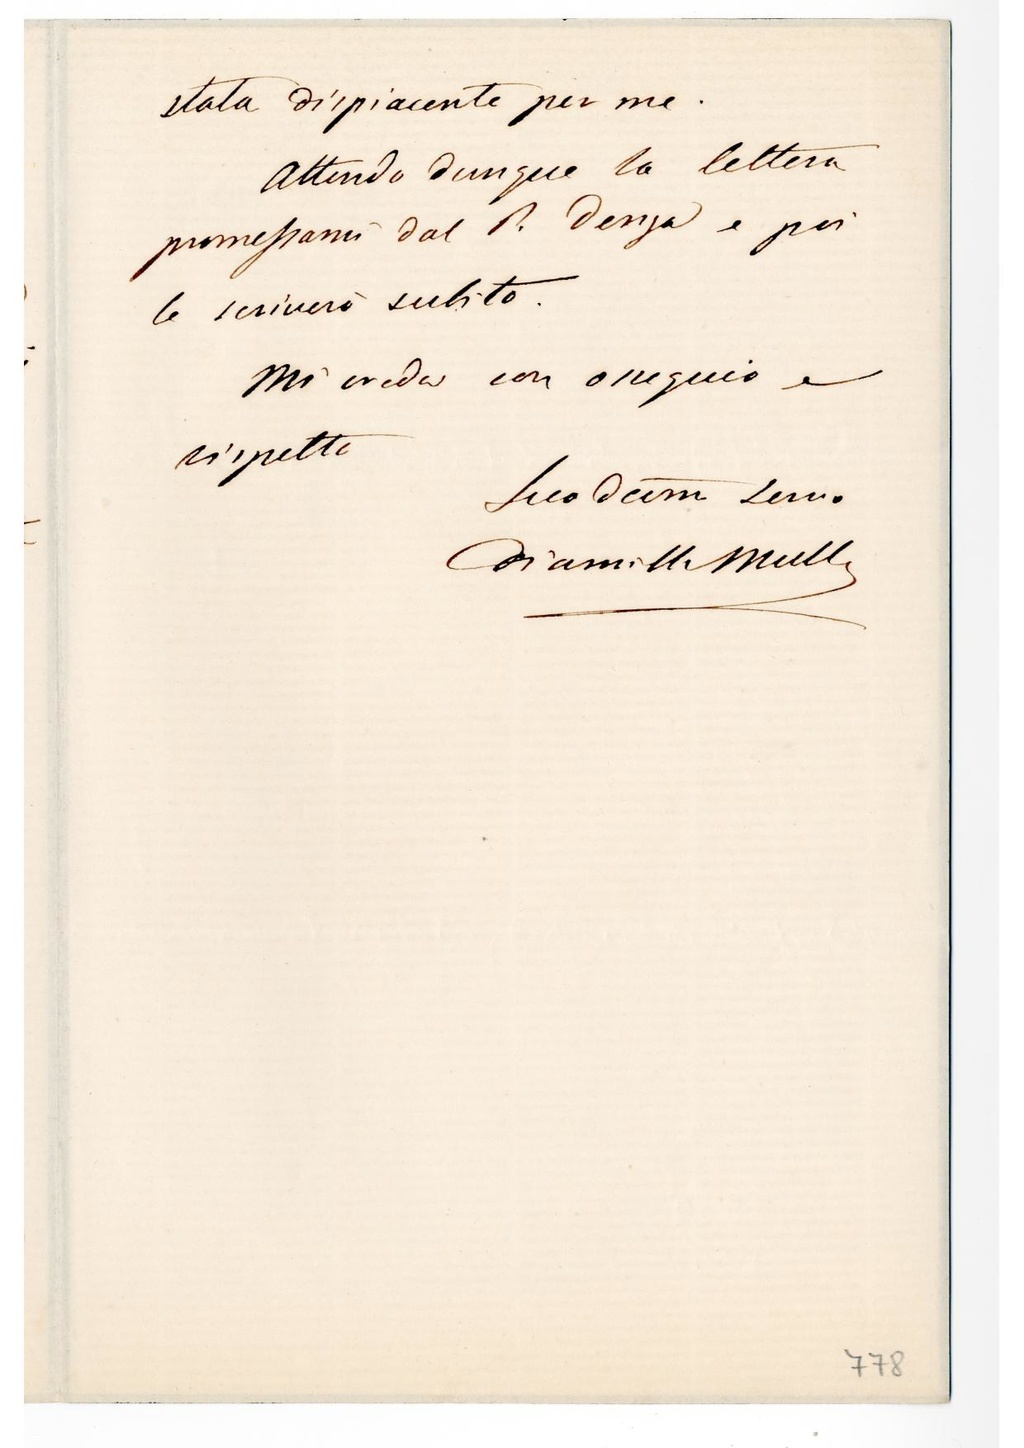 stata dispiacente per me.
Attendo dunque la lettera
promessami dal P. Denza e poi
le scriverò subito.
Mi creda con ossequio e
rispetto
Suo devm servo
Diamilla Muller
778